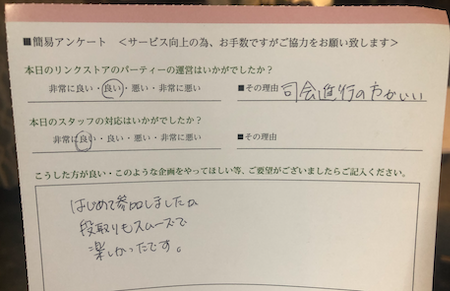 ■簡易アンケート ＜サービス向上の為、お手数ですがご協力をお願い致します＞
本日のリンクストアのパーティーの運営はいかがでしたか？
非常に良い・良い・悪い・非常に悪い ■その理由 司会進行の方がいい
本日のスタッフの対応はいかがでしたか？
非常に良い・良い・悪い・非常に悪い ■その理由
こうした方が良い・このような企画をやってほしい等、ご要望がございましたらご記入ください。
はじめて参加しましたが
段取りもスムーズで
楽しかったです。